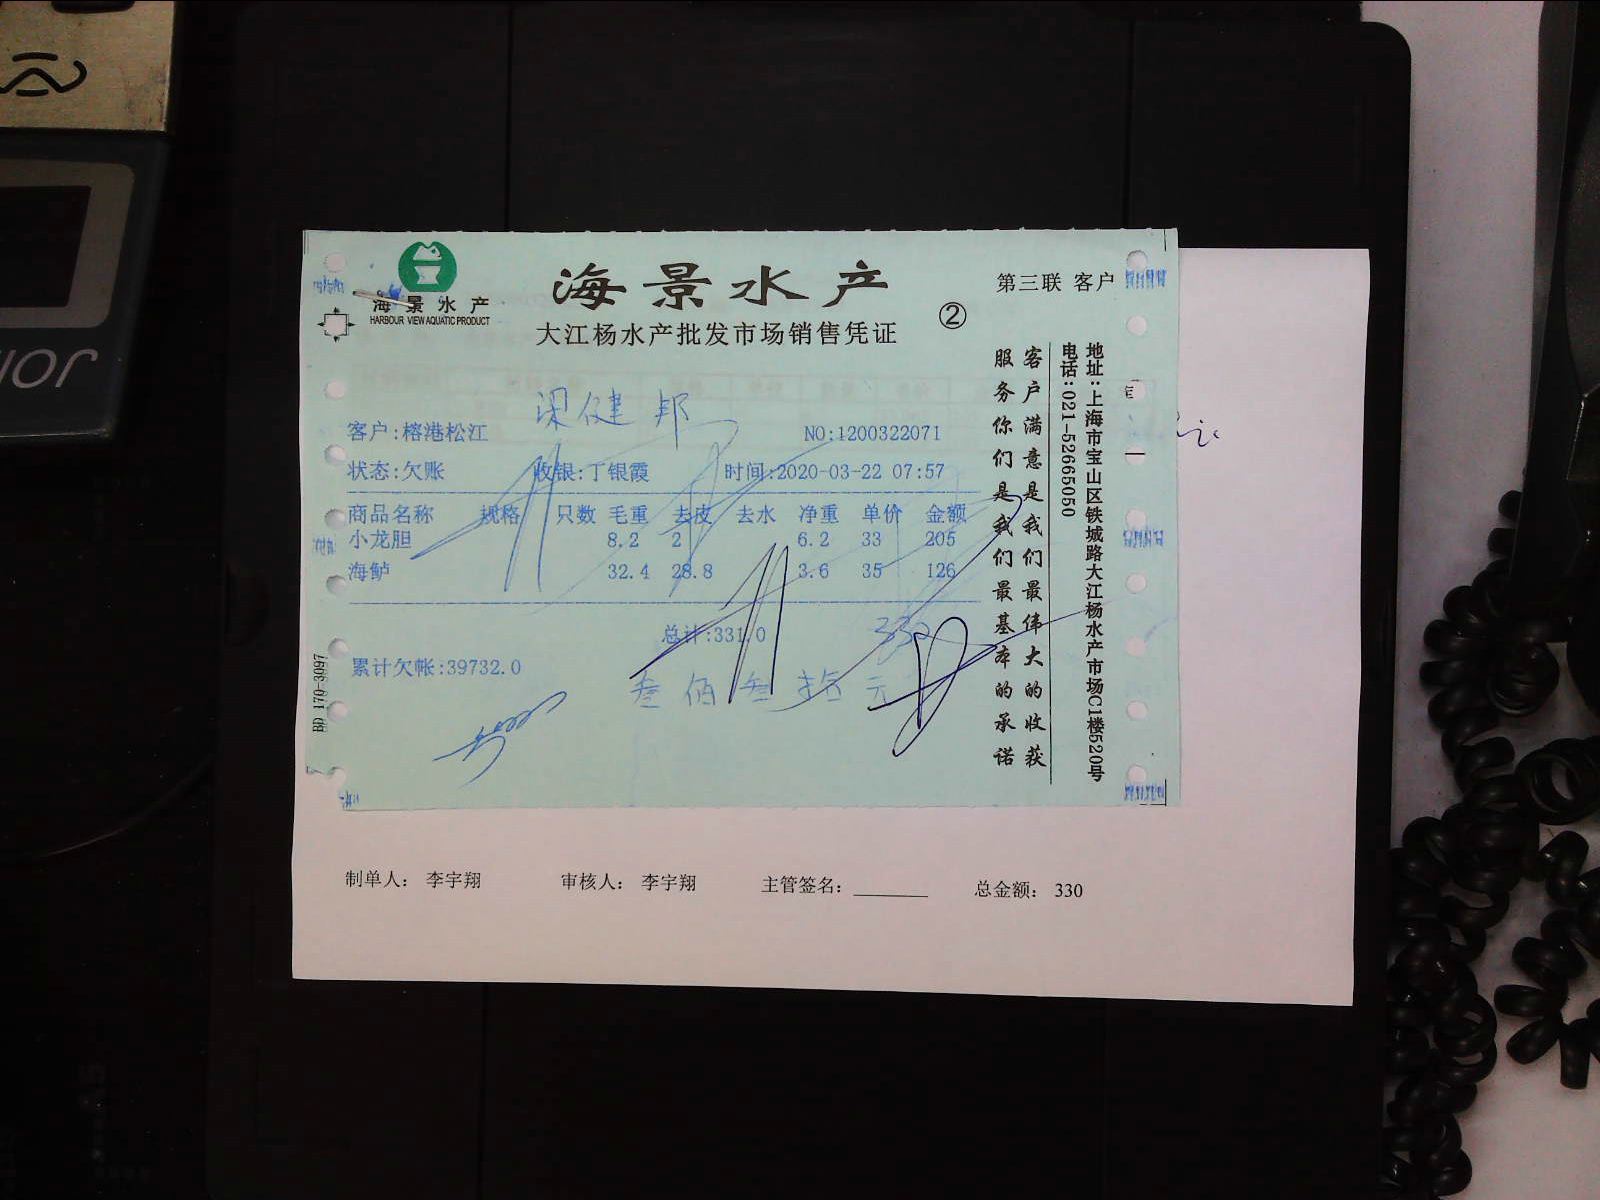 海景水产
HARBOUR VIEW AQUATIC PRODUCT
海景水产
大江杨水产批发市场销售凭证
②
第三联 客户
梁健邦
客户:榕港松江 NO:1200322071
状态:欠账 收银:丁银霞 时间:2020-03-22 07:57
商品名称 规格 只数 毛重 去皮 去水 净重 单价 金额
小龙胆 8.2 2 6.2 33 205
海鲈 32.4 28.8 3.6 35 126
总计:331.0
330
累计欠帐:39732.0
叁佰叁拾元
客户满意是我们最伟大的收获
服务你们是我们最基本的承诺
地址:上海市宝山区铁城路大江杨水产市场C1楼520号
电话:021-52665050
BD 170-3097
制单人: 李宇翔 审核人: 李宇翔 主管签名: 总金额: 330